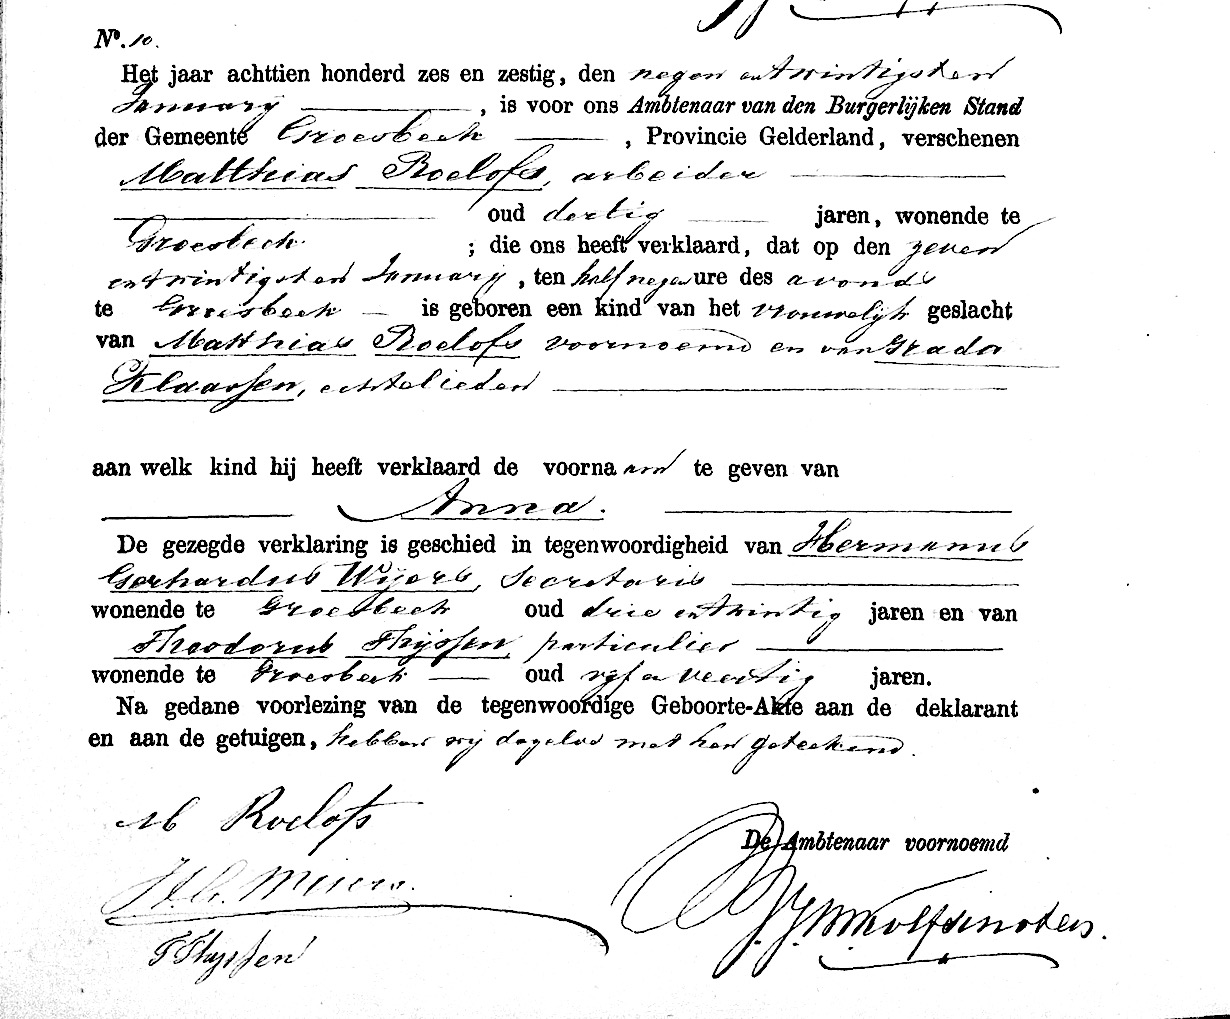 N°. 10.
Het jaar achttien honderd zes en zestig, den negen en twintigsten
January, is voor ons Ambtenaar van den Burgerlijken Stand
der Gemeente Groesbeek, Provincie Gelderland, verschenen
Matthias Roelofs, arbeider
oud dertig jaren, wonende te
Groesbeek ; die ons heeft verklaard, dat op den zeven
en twintigsten January, ten half negen ure des avonds
te Groesbeek is geboren een kind van het vrouwelijk geslacht
van Matthias Roelofs voornoemd en van Grada
Klaassen, echtelieden
aan welk kind hij heeft verklaard de voornaam te geven van
Anna.
De gezegde verklaring is geschied in tegenwoordigheid van Hermanus
Gerhardus Wijers, Secretaris
wonende te Groesbeek oud drie en twintig jaren en van
Theodorus Thijssen, particulier
wonende te Groesbeek oud vijf en veertig jaren.
Na gedane voorlezing van de tegenwoordige Geboorte-Akte aan de deklarant
en aan de getuigen, hebben wij dezelve met hen geteekend.
M Roelofs
De Ambtenaar voornoemd
H. G.
T Thijssen